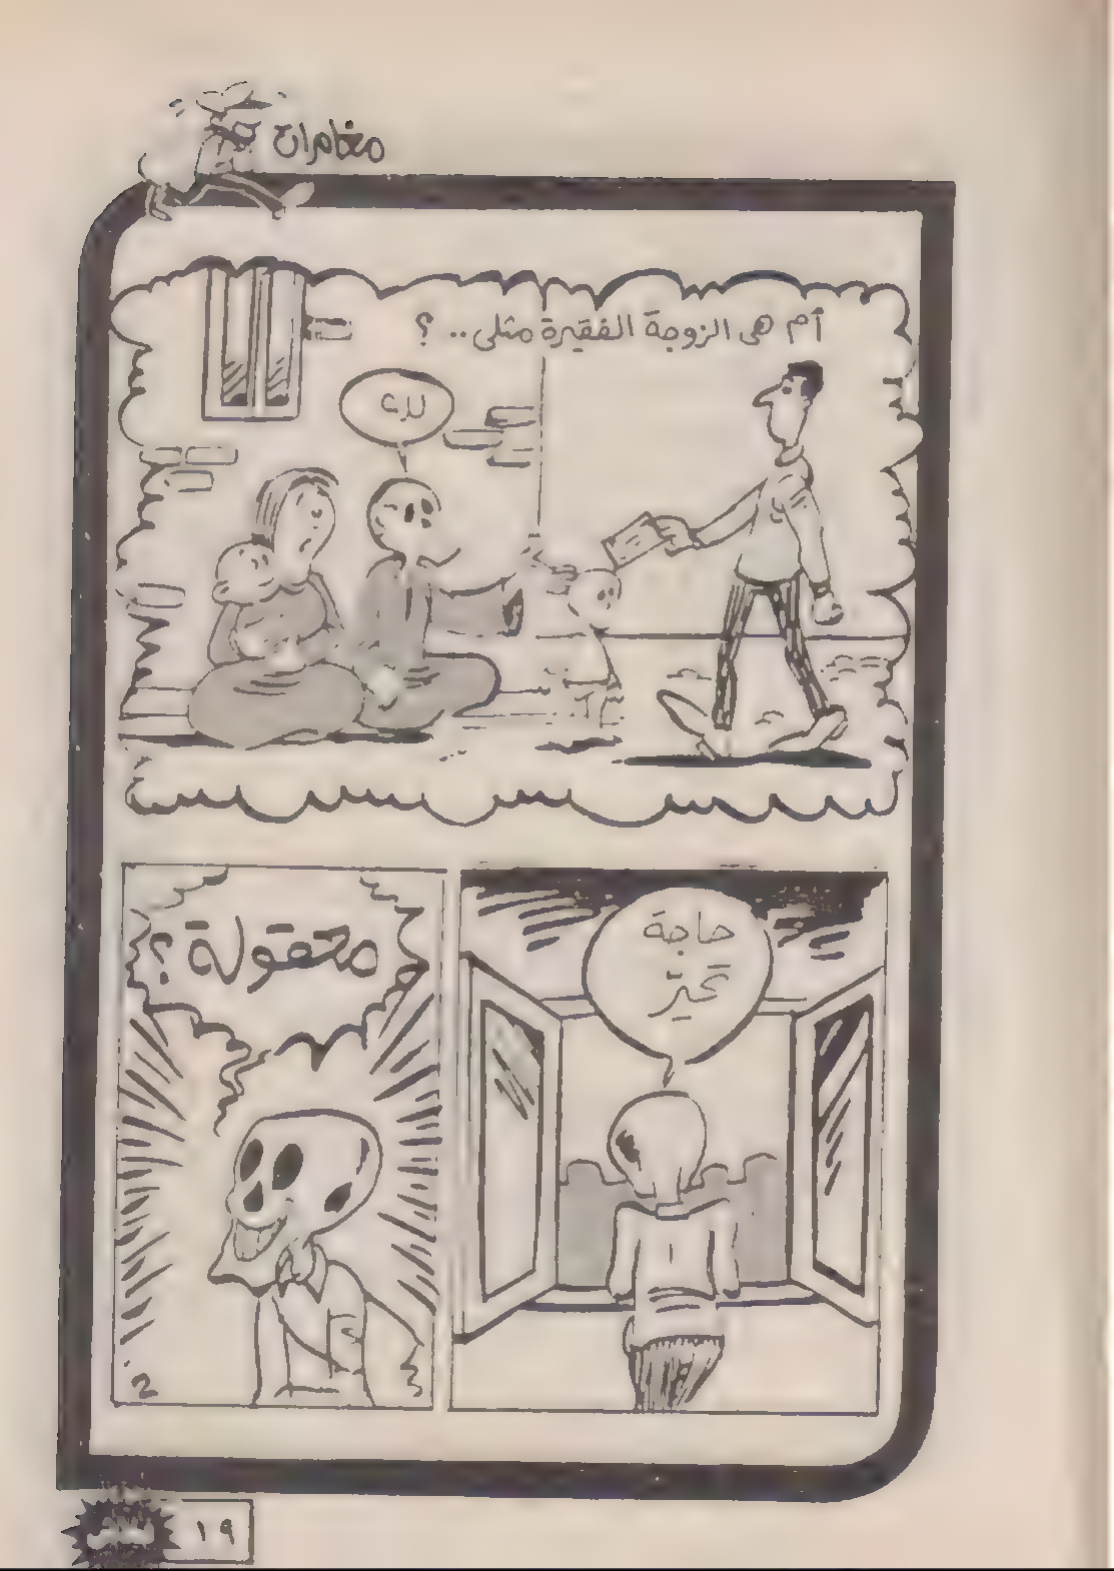 مغامرات
أم هى الزوجة الفقيرة مثلى.. ؟
لله
حاجة
تحيّر
معقولة ؟
2
١٩